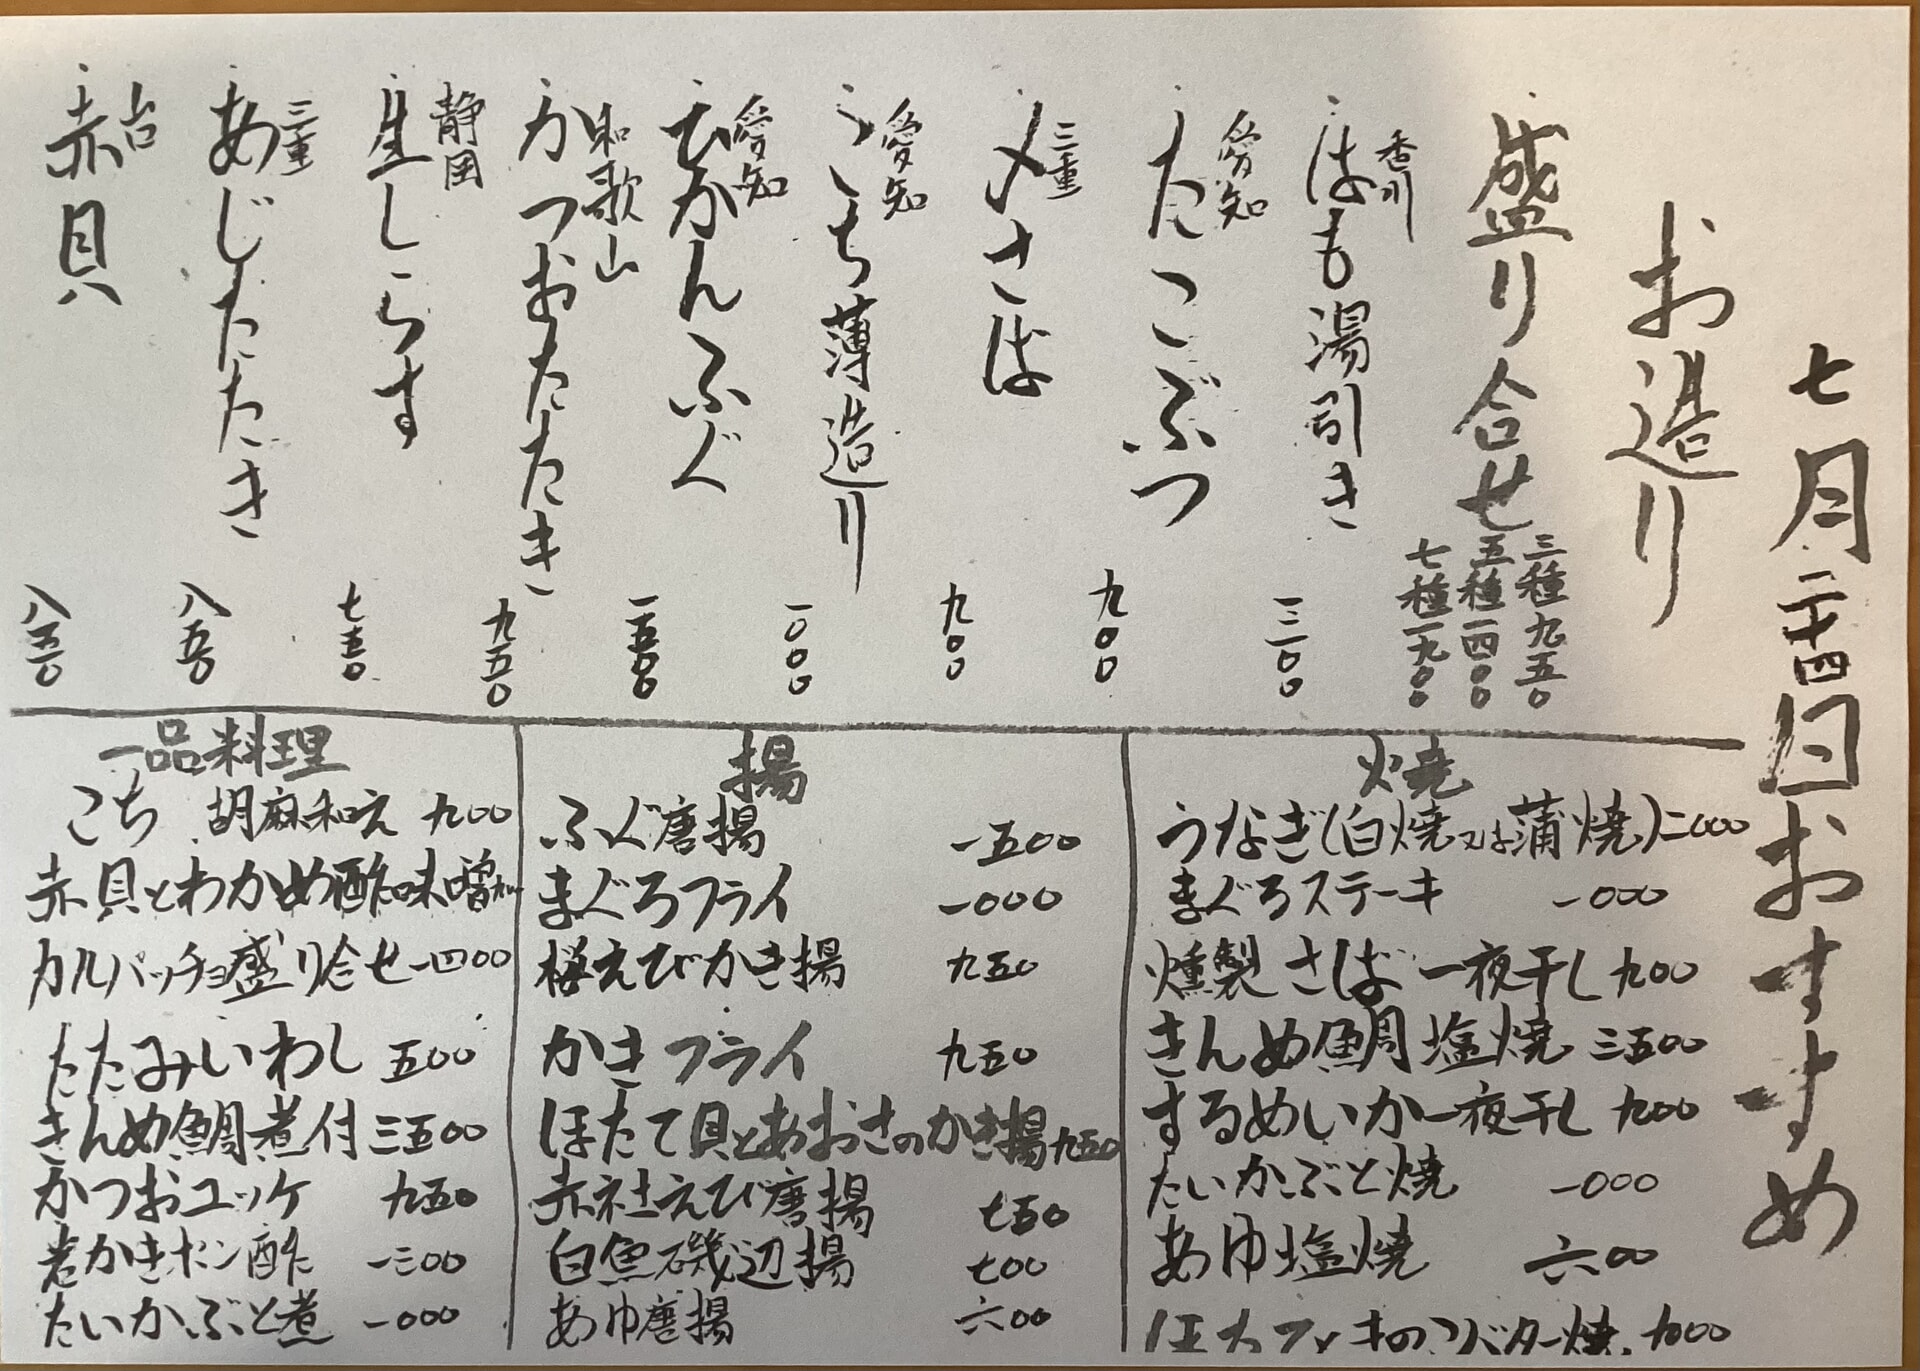 七月二十四日おすすめ
お造り
盛り合せ
三種九五〇
五種一四〇〇
七種一九〇〇
香川
はも湯引き 一三〇〇
愛知
たこぶつ 九〇〇
三重
〆さば 九〇〇
愛知
こち薄造り 一〇〇〇
愛知
ひかんふぐ 一五〇〇
和歌山
かつおたたき 九五〇
静岡
生しらす 七五〇
三重
あじたたき 八五〇
赤貝 八五〇
焼
うなぎ(白焼又は蒲焼)二〇〇〇
まぐろステーキ 一〇〇〇
燻製さば一夜干し 九〇〇
きんめ鯛塩焼 三五〇〇
するめいか一夜干し 九〇〇
たいかぶと焼 一〇〇〇
あゆ塩焼 六〇〇
バター焼 九〇〇
揚
ふぐ唐揚 一五〇〇
まぐろフライ 一〇〇〇
桜えびかき揚 九五〇
かきフライ 九五〇
ほたて貝とあおさのかき揚 九五〇
赤社えび唐揚 七五〇
白魚磯辺揚 七〇〇
あゆ唐揚 六〇〇
一品料理
こち 胡麻和え 九〇〇
赤貝とわかめ酢味噌
カルパッチョ盛り合せ 一四〇〇
たたみいわし 五〇〇
きんめ鯛煮付 三五〇〇
かつおユッケ 九五〇
岩かきポン酢 一三〇〇
たいかぶと煮 一〇〇〇